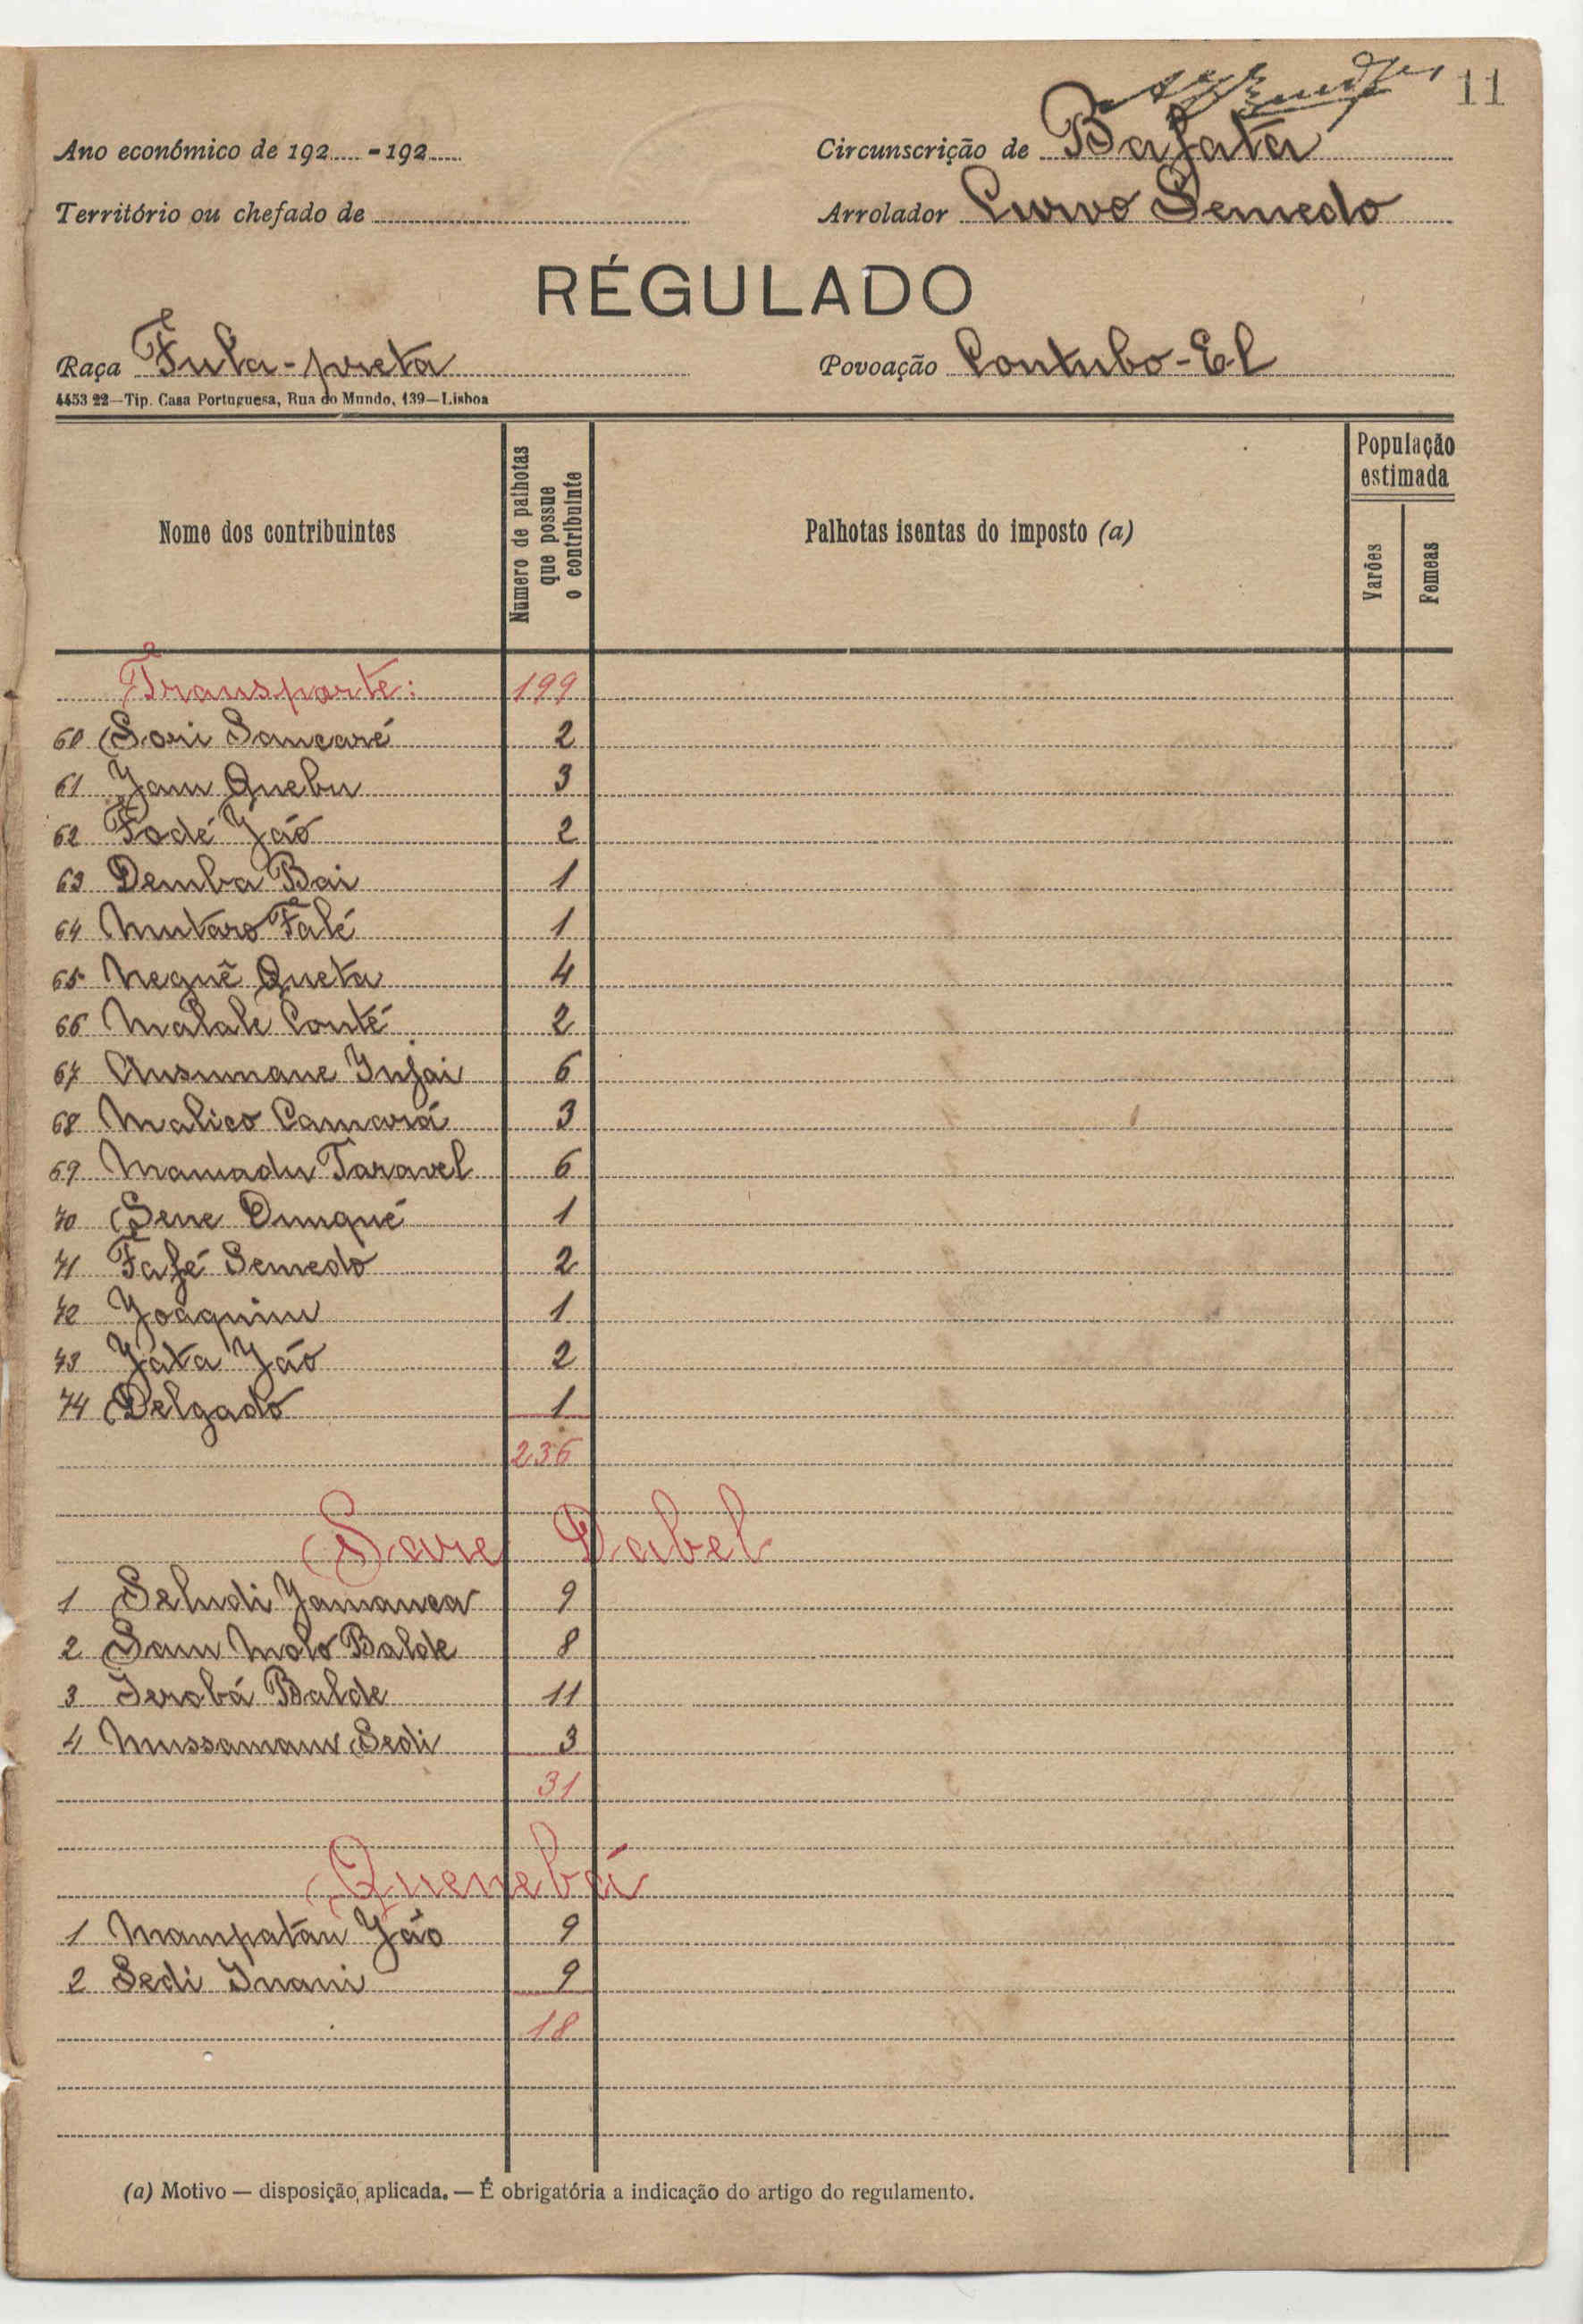 11
Ano económico de 192..... - 192.....
Circunscrição de Bafatá
Território ou chefado de
Arrolador Curvo Semedo
RÉGULADO
Raça Fula-preta
Povoação Contubo-El
4453 22—Tip. Casa Portuguesa, Rua do Mundo, 139—Lisboa
Nome dos contribuintes
Número de palhotas que possue o contribuinte
Palhotas isentas do imposto (a)
População estimada
Varões
Femeas
Transporte: 199
60 Sori Sancaré 2
61 Jam Quebu 3
62 Fodé Jáo 2
63 Demba Bai 1
64 Mutaro Falé 1
65 Nequê Queta 4
66 Malale Conté 2
67 Ansumane Injai 6
68 Malico Camará 3
69 Mamadu Taravel 6
70 Sene Dunqué 1
71 Fafé Semedo 2
72 Joaquim 1
73 Jata Jáo 2
74 Delgado 1
236
Sare Dabel
1 Seludi Jamanca 9
2 Sam Molo Balde 8
3 Jerobá Balde 11
4 Mussamam Sedi 3
31
Quenebá
1 Mampatan Jáo 9
2 Sedi Inani 9
18
(a) Motivo — disposição aplicada. — É obrigatória a indicação do artigo do regulamento.